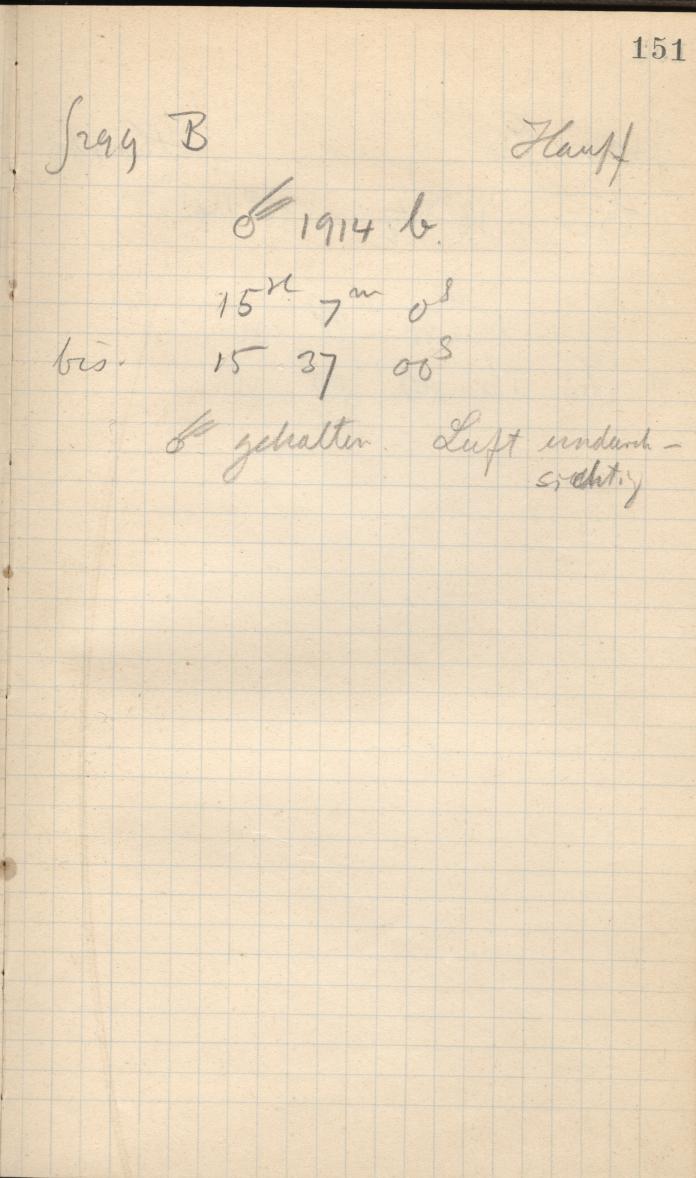 151
S299 B Hauff
☄ 1914 b.
15h 7m 0s
bis. 15 37 00s
☄ gehalten. Luft undurch-
sichtig